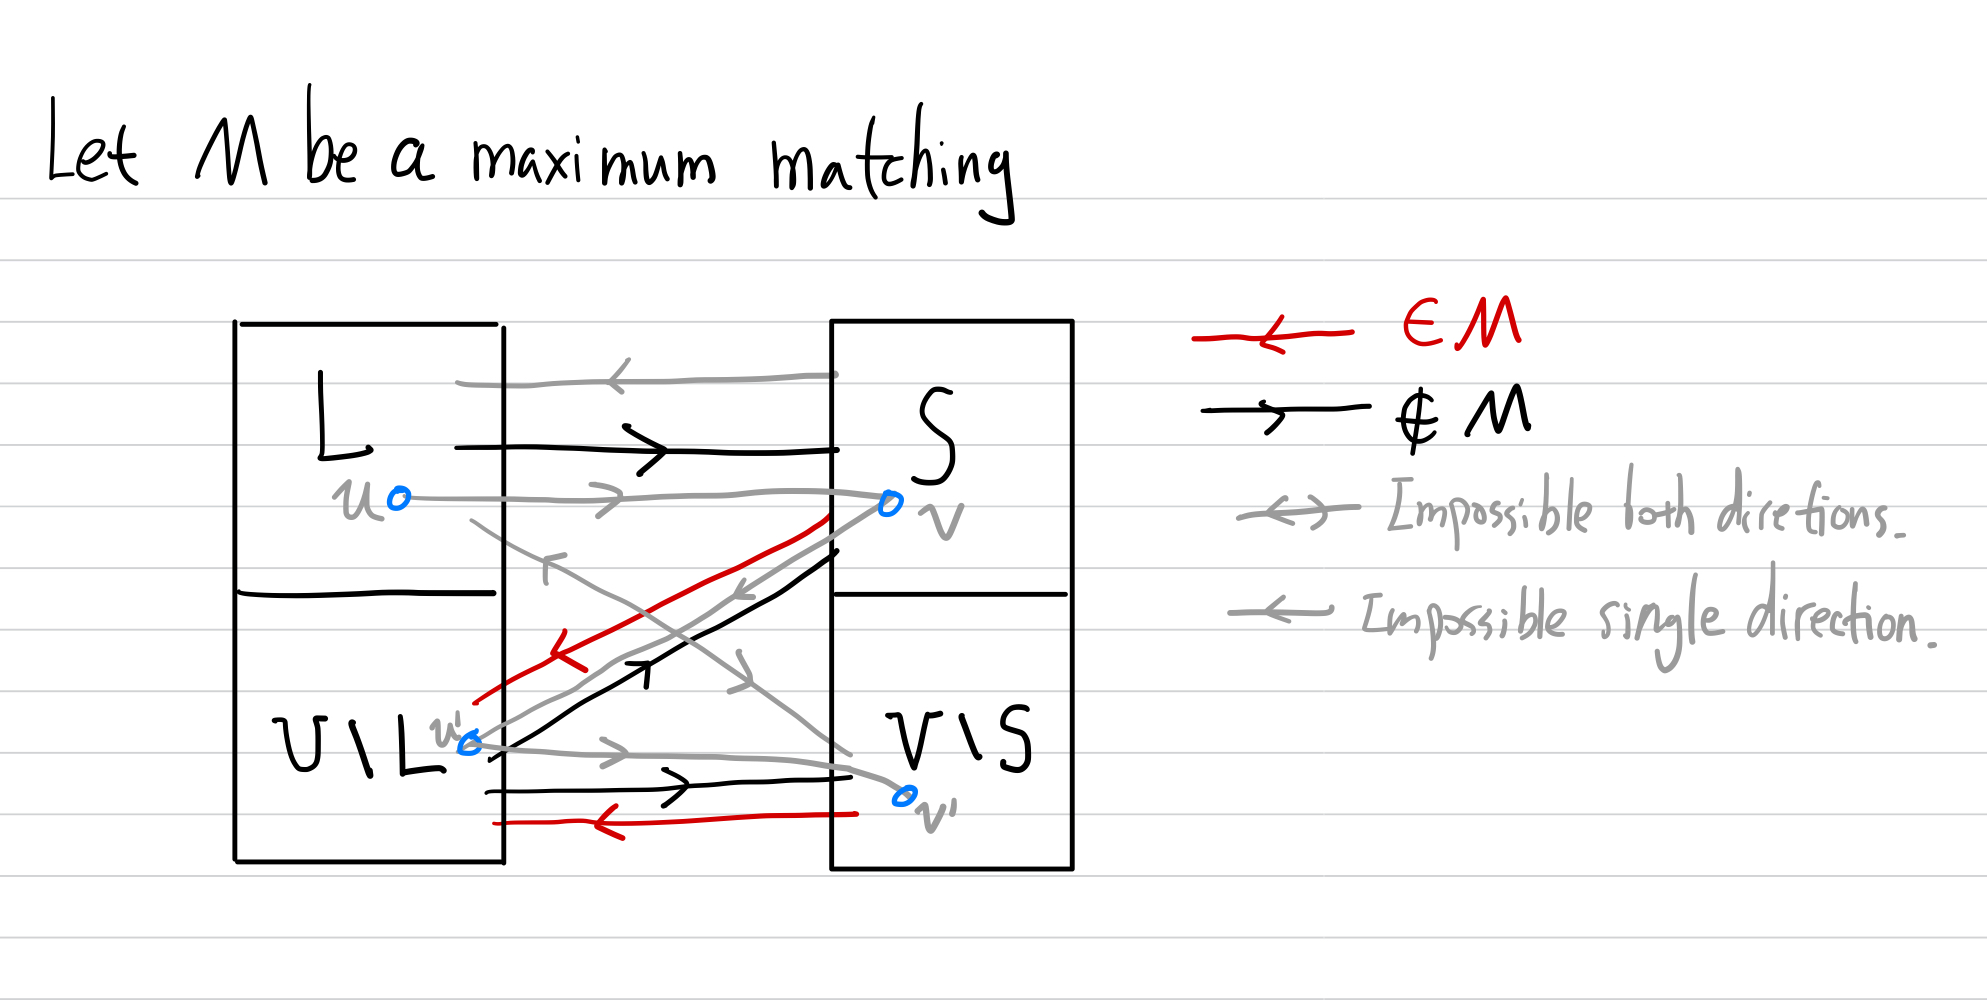 Let M be a maximum matching
∈ M
∉ M
L
S
u
v
Impossible both diretions.
Impossible single direction.
U\L
u'
V\S
v'